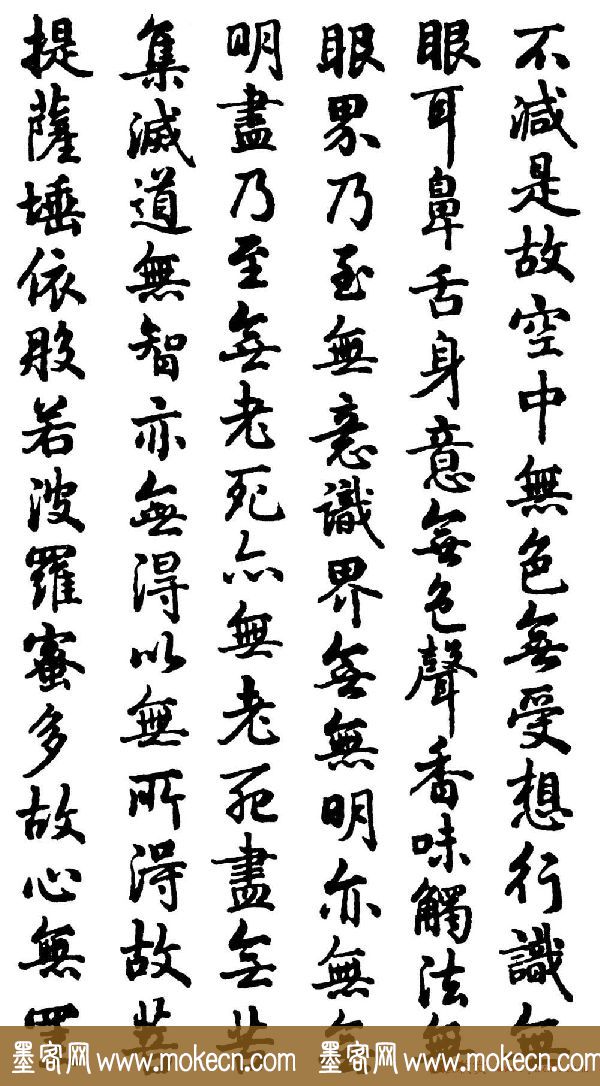 不減是故空中無色無受想行識無
眼耳鼻舌身意無色聲香味觸法無
眼界乃至無意識界無無明亦無無
明盡乃至無老死亦無老死盡無苦
集滅道無智亦無得以無所得故菩
提薩埵依般若波羅蜜多故心無罣
墨客网 www.mokecn.com 墨客网 www.mokecn.com